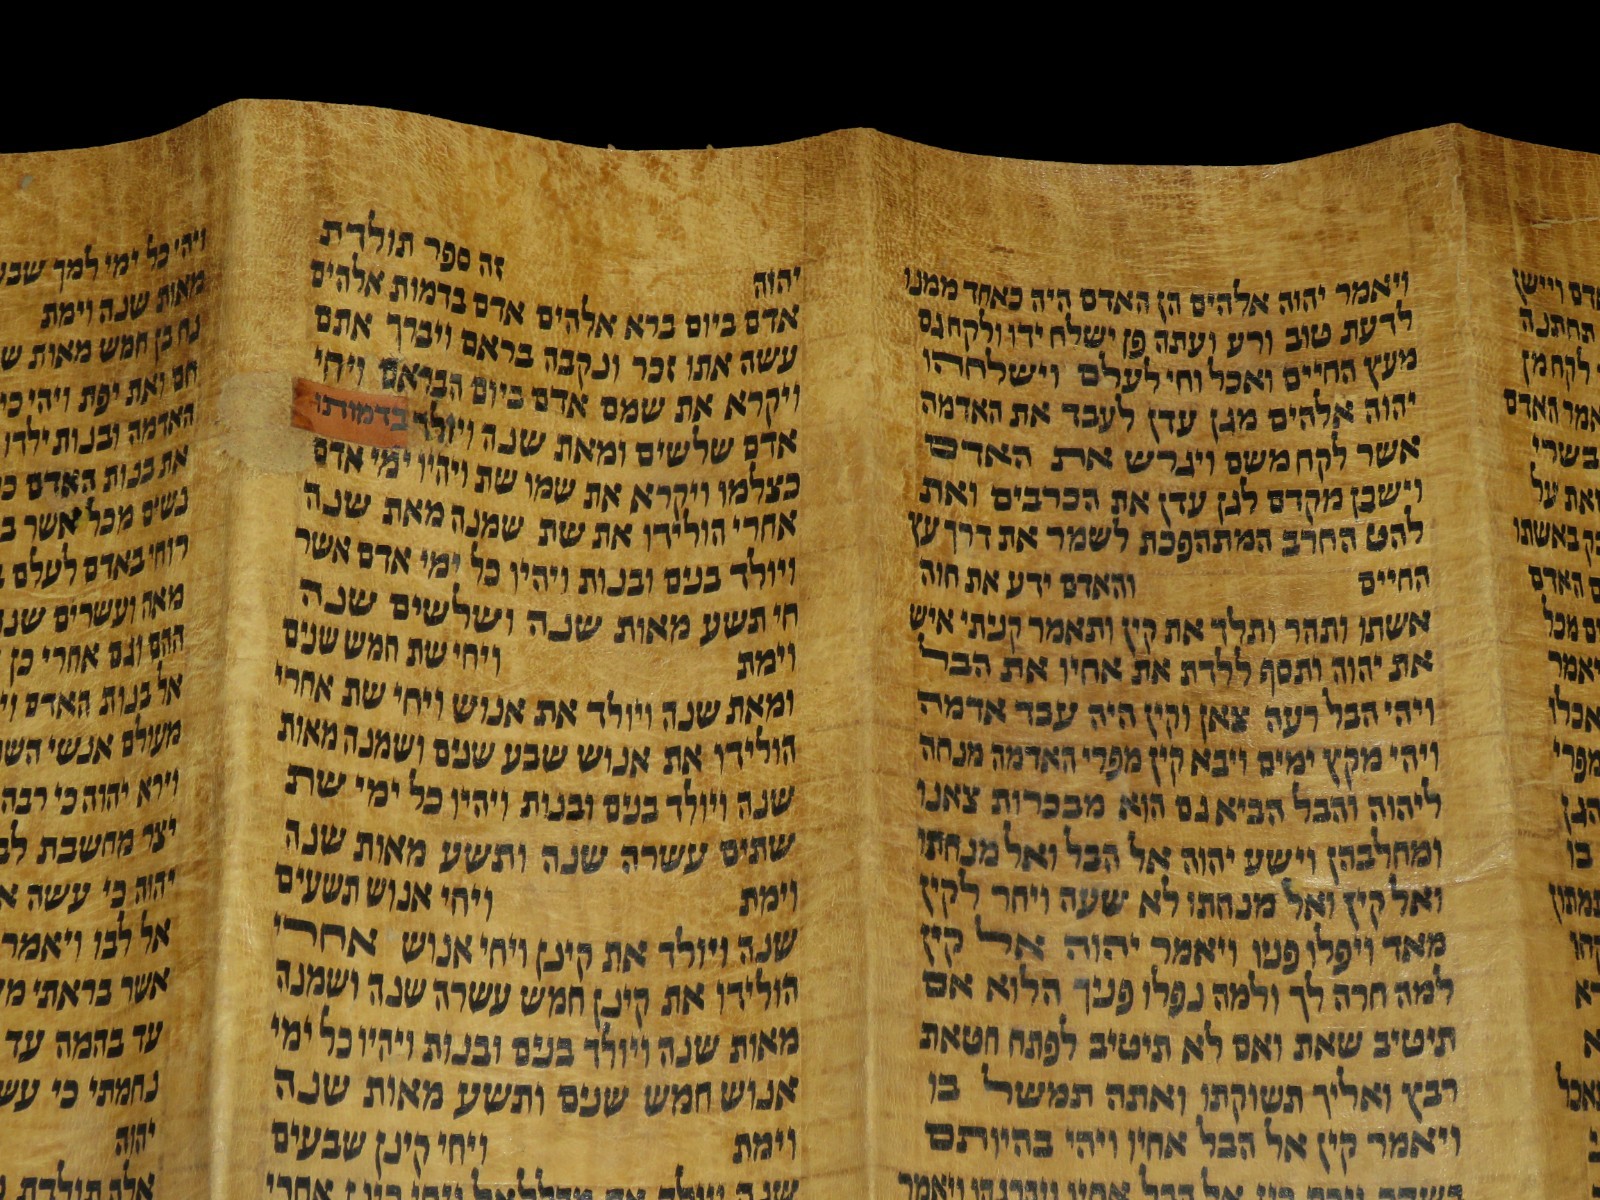 ויישן
תחתנה
לקח מן
האדם
בשרי
על
באשתו
האדם
מכל
בו
ויאמר יהוה אלהים הן האדם היה כאחד ממנו
לדעת טוב ורע ועתה פן ישלח ידו ולקח גם
מעץ החיים ואכל וחי לעלם וישלחהו
יהוה אלהים מגן עדן לעבד את האדמה
אשר לקח משם ויגרש את האדם
וישכן מקדם לגן עדן את הכרבים ואת
להט החרב המתהפכת לשמר את דרך עץ
החיים והאדם ידע את חוה
אשתו ותהר ותלד את קין ותאמר קניתי איש
את יהוה ותסף ללדת את אחיו את הבל
ויהי הבל רעה צאן וקין היה עבד אדמה
ויהי מקץ ימים ויבא קין מפרי האדמה מנחה
ליהוה והבל הביא גם הוא מבכרות צאנו
ומחלבהן וישע יהוה אל הבל ואל מנחתו
ואל קין ואל מנחתו לא שעה ויחר לקין
מאד ויפלו פניו ויאמר יהוה אל קין
למה חרה לך ולמה נפלו פניך הלוא אם
תיטיב שאת ואם לא תיטיב לפתח חטאת
רבץ ואליך תשוקתו ואתה תמשל בו
ויאמר קין אל הבל אחיו ויהי בהיותם
יהוה זה ספר תולדת
אדם ביום ברא אלהים אדם בדמות אלהים
עשה אתו זכר ונקבה בראם ויברך אתם
ויקרא את שמם אדם ביום הבראם ויחי
אדם שלשים ומאת שנה ויולד בדמותו
כצלמו ויקרא את שמו שת ויהיו ימי אדם
אחרי הולידו את שת שמנה מאת שנה
ויולד בנים ובנות ויהיו כל ימי אדם אשר
חי תשע מאות שנה ושלשים שנה
וימת ויחי שת חמש שנים
ומאת שנה ויולד את אנוש ויחי שת אחרי
הולידו את אנוש שבע שנים ושמנה מאות
שנה ויולד בנים ובנות ויהיו כל ימי שת
שתים עשרה שנה ותשע מאות שנה
וימת ויחי אנוש תשעים
שנה ויולד את קינן ויחי אנוש אחרי
הולידו את קינן חמש עשרה שנה ושמנה
מאות שנה ויולד בנים ובנות ויהיו כל ימי
אנוש חמש שנים ותשע מאות שנה
וימת ויחי קינן שבעים
שנה ויולד את מהללאל ויחי קינן אחרי
ויהי כל ימי למך
מאות שנה וימת
נח בן חמש מאות
חם ואת יפת ויהי כי
האדמה ובנות ילדו
את בנות האדם
נשים מכל אשר
רוחי באדם לעלם
מאה ועשרים
ההם וגם אחרי כן
אל בנות האדם
מעולם אנשי
וירא יהוה כי רבה
יצר מחשבת
יהוה כי עשה
אל לבו ויאמר
אשר בראתי
עד בהמה עד
נחמתי כי
יהוה
אלה תולדת